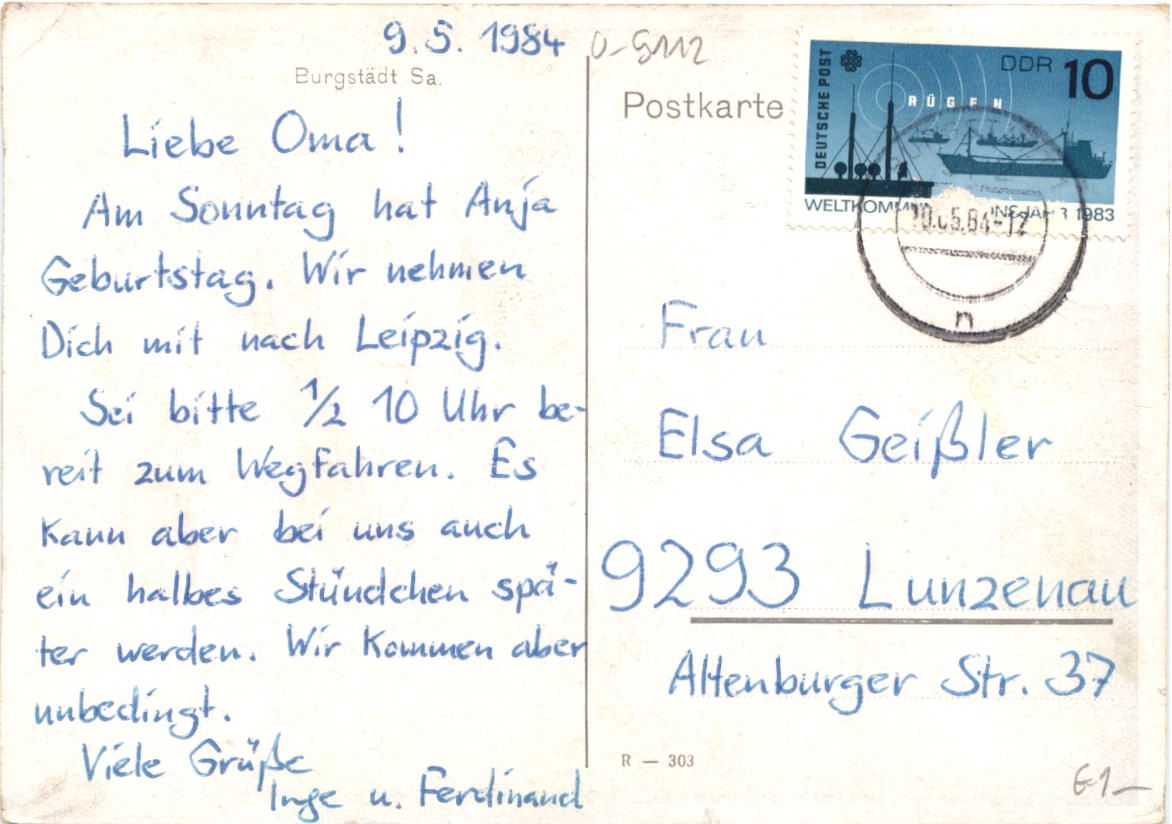 9.5. 1984
Burgstädt Sa.
Liebe Oma!
Am Sonntag hat Anja
Geburtstag. Wir nehmen
Dich mit nach Leipzig.
Sei bitte 1/2 10 Uhr be-
reit zum Wegfahren. Es
kann aber bei uns auch
ein halbes Stündchen spä-
ter werden. Wir kommen aber
unbedingt.
Viele Grüße
Inge u. Ferdinand
Postkarte
DEUTSCHE POST
DDR 10
RÜGEN
1983
n
Frau
Elsa Geißler
9293 Lunzenau
Altenburger Str. 37
R — 303